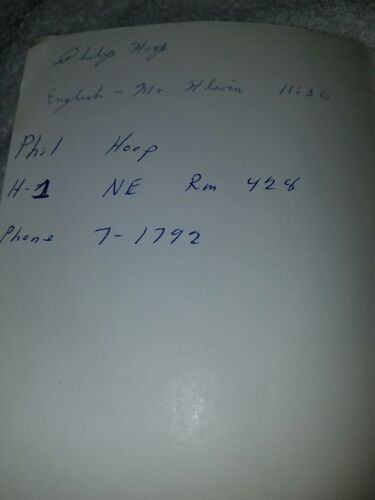 Philip Hoop
English - Mr. Hlavin 11:30
Phil Hoop
H-1 NE Rm 428
Phone 7-1792